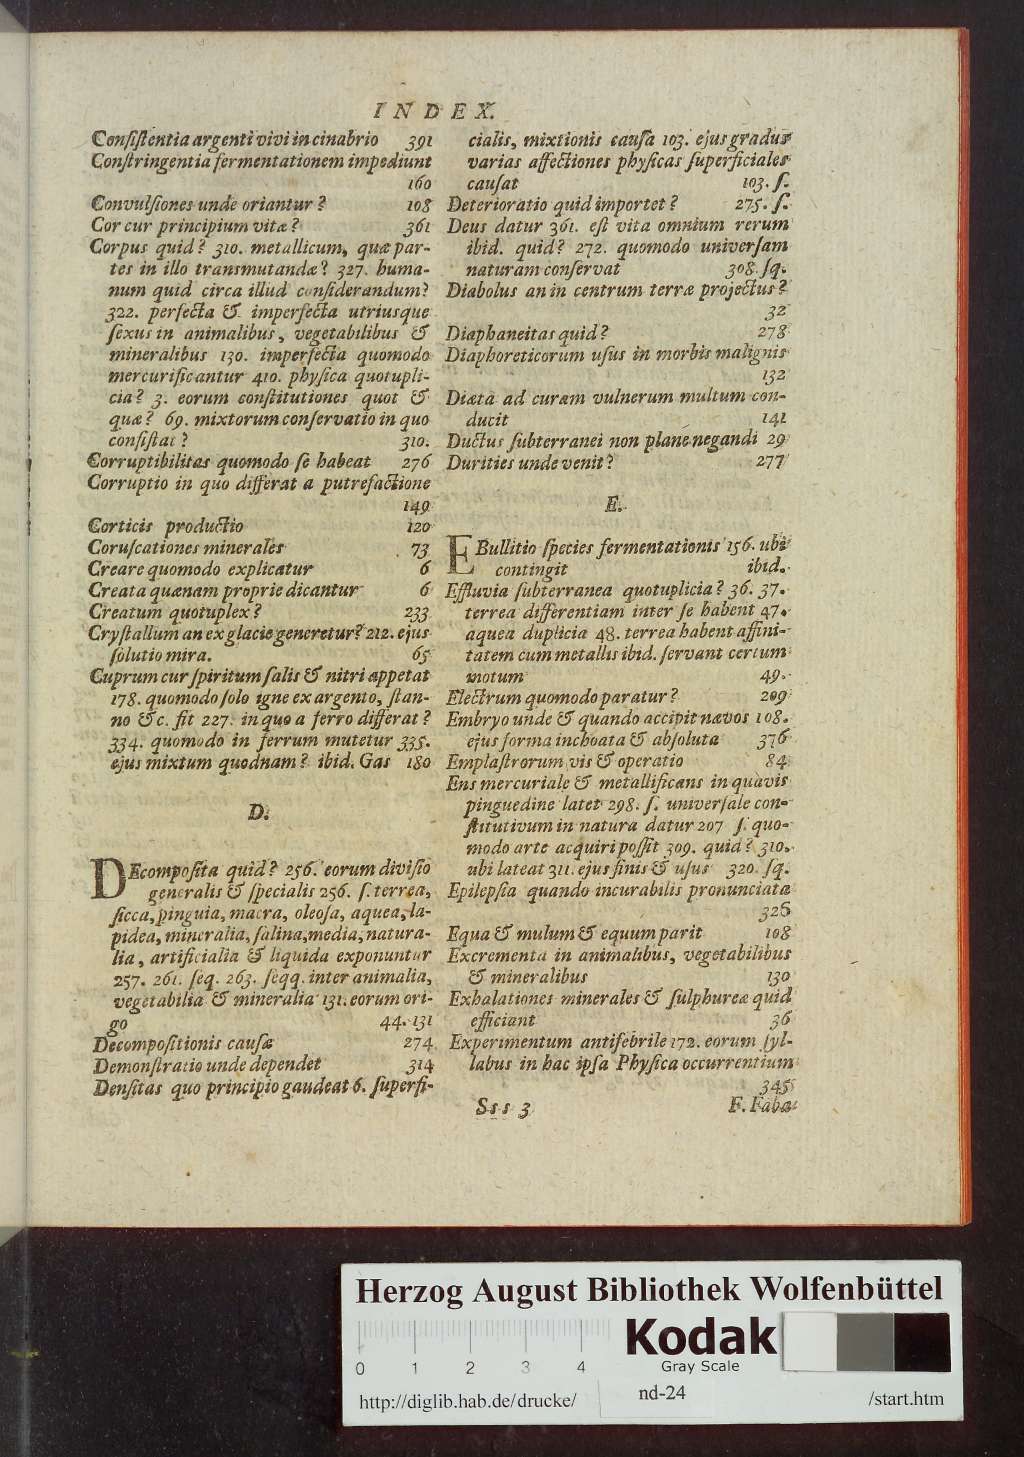 INDEX.
Conſiſtentia argenti vivi in cinabrio 391
Conſtringentia fermentationem impediunt
160
Convulſiones unde oriantur? 108
Cor cur principium vitæ? 361
Corpus quid? 310. metallicum, quæ par-
tes in illo transmutandæ? 327. huma-
num quid circa illud conſiderandum?
322. perfecta & imperfecta utriusque
ſexus in animalibus, vegetabilibus &
mineralibus 130. imperfecta quomodo
mercurificantur 410. phyſica quotupli-
cia? 3. eorum conſtitutiones quot &
quæ? 69. mixtorum conſervatio in quo
conſiſtat? 310.
Corruptibilitas quomodo ſe habeat 276
Corruptio in quo differat a putrefactione
149
Corticis productio 120
Coruſcationes minerales 73
Creare quomodo explicatur 6
Creata quænam proprie dicantur 6
Creatum quotuplex? 233
Cryſtallum an ex glacie generetur? 212. ejus
ſolutio mira. 65
Cuprum cur ſpiritum ſalis & nitri appetat
178. quomodo ſolo igne ex argento, ſtan-
no &c. fit 227. in quo a ferro differat?
334. quomodo in ferrum mutetur 335.
ejus mixtum quodnam? ibid. Gas 180
D.
DEcompoſita quid? 256. eorum diviſio
generalis & ſpecialis 256. ſ. terrea,
ſicca, pinguia, macra, oleoſa, aquea, la-
pidea, mineralia, ſalina, media, natura-
lia, artificialia & liquida exponuntur
257. 261. ſeq. 263. ſeqq. inter animalia,
vegetabilia & mineralia 131. eorum ori-
go 44. 131
Decompoſitionis cauſæ 274
Demonſtratio unde dependet 314
Denſitas quo principio gaudeat 6. ſuperfi-
cialis, mixtionis cauſa 103. ejus gradus
varias affectiones phyſicas ſuperficiales
cauſat 103. ſ.
Deterioratio quid importet? 275. ſ.
Deus datur 361. eſt vita omnium rerum
ibid. quid? 272. quomodo univerſam
naturam conſervat 308. ſq.
Diabolus an in centrum terræ projectus?
32
Diaphaneitas quid? 278
Diaphoreticorum uſus in morbis malignis
132
Diæta ad curam vulnerum multum con-
ducit 141
Ductus ſubterranei non plane negandi 29
Durities unde venit? 277
E.
EBullitio ſpecies fermentationis 156. ubi
contingit ibid.
Effluvia ſubterranea quotuplicia? 36. 37.
terrea differentiam inter ſe habent 47.
aquea duplicia 48. terrea habent affini-
tatem cum metallis ibid. ſervant certum
motum 49.
Electrum quomodo paratur? 209
Embryo unde & quando accipit nævos 108.
ejus forma inchoata & abſoluta 376
Emplaſtrorum vis & operatio 84
Ens mercuriale & metallificans in quavis
pinguedine latet 298. ſ. univerſale con-
ſtitutivum in natura datur 207 ſ. quo-
modo arte acquiri poſſit 309. quid? 310.
ubi lateat 311. ejus finis & uſus 320. ſq.
Epilepſia quando incurabilis pronunciata
326
Equa & mulum & equum parit 108
Excrementa in animalibus, vegetabilibus
& mineralibus 130
Exhalationes minerales & ſulphureæ quid
efficiant 36
Experimentum antifebrile 172. eorum ſyl-
labus in hac ipſa Phyſica occurrentium
345
Sss 3 F. Faba
Herzog August Bibliothek Wolfenbüttel
0 1 2 3 4
Kodak
Gray Scale
http://diglib.hab.de/drucke/ nd-24 /start.htm